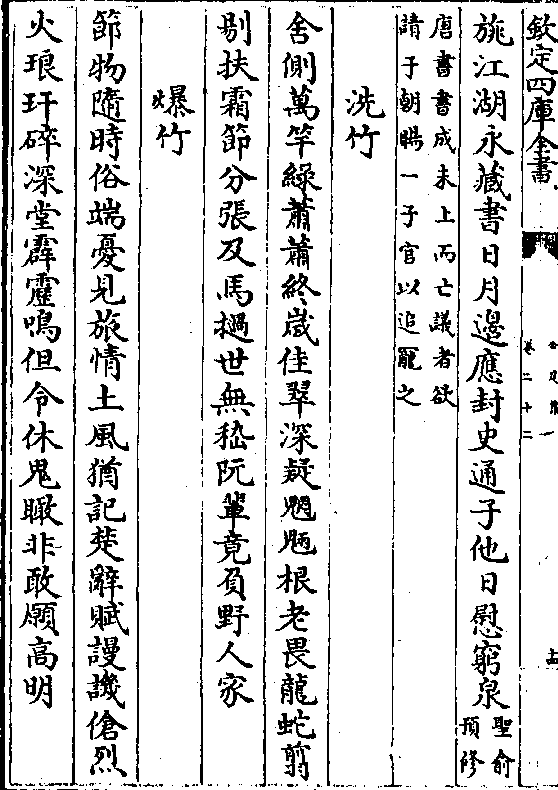 欽定四庫全書
卷二十二
旐江湖永藏書日月邊應封史通子他日慰窮泉聖俞預修
唐書書成未上而亡議者欲
請于朝賜一子官以追寵之
洗竹
舍側萬竿綠蕭蕭終歲佳翠深疑魍魎根老畏龍蛇翦
剔扶霜節分張及馬撾世無嵇阮輩竟負野人家
爆竹
節物隨時俗端憂見旅情土風猶記楚辭賦謾譏傖烈
火琅玕碎深堂霹靂鳴但令休鬼瞰非敢願高明